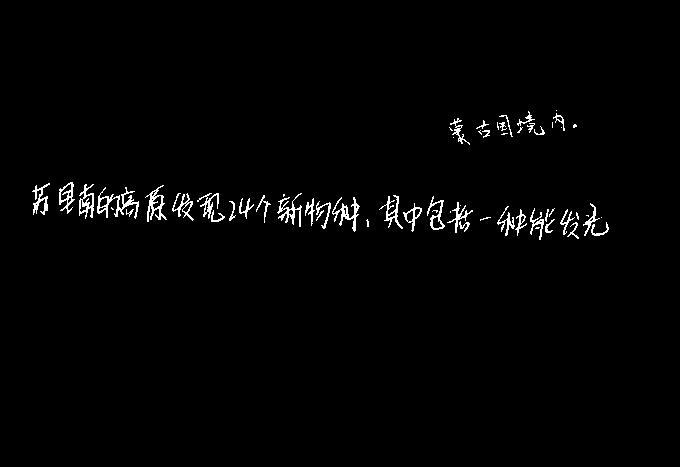 蒙古国境内。
苏里南的高原发现24个新物种,其中包括一种能发光